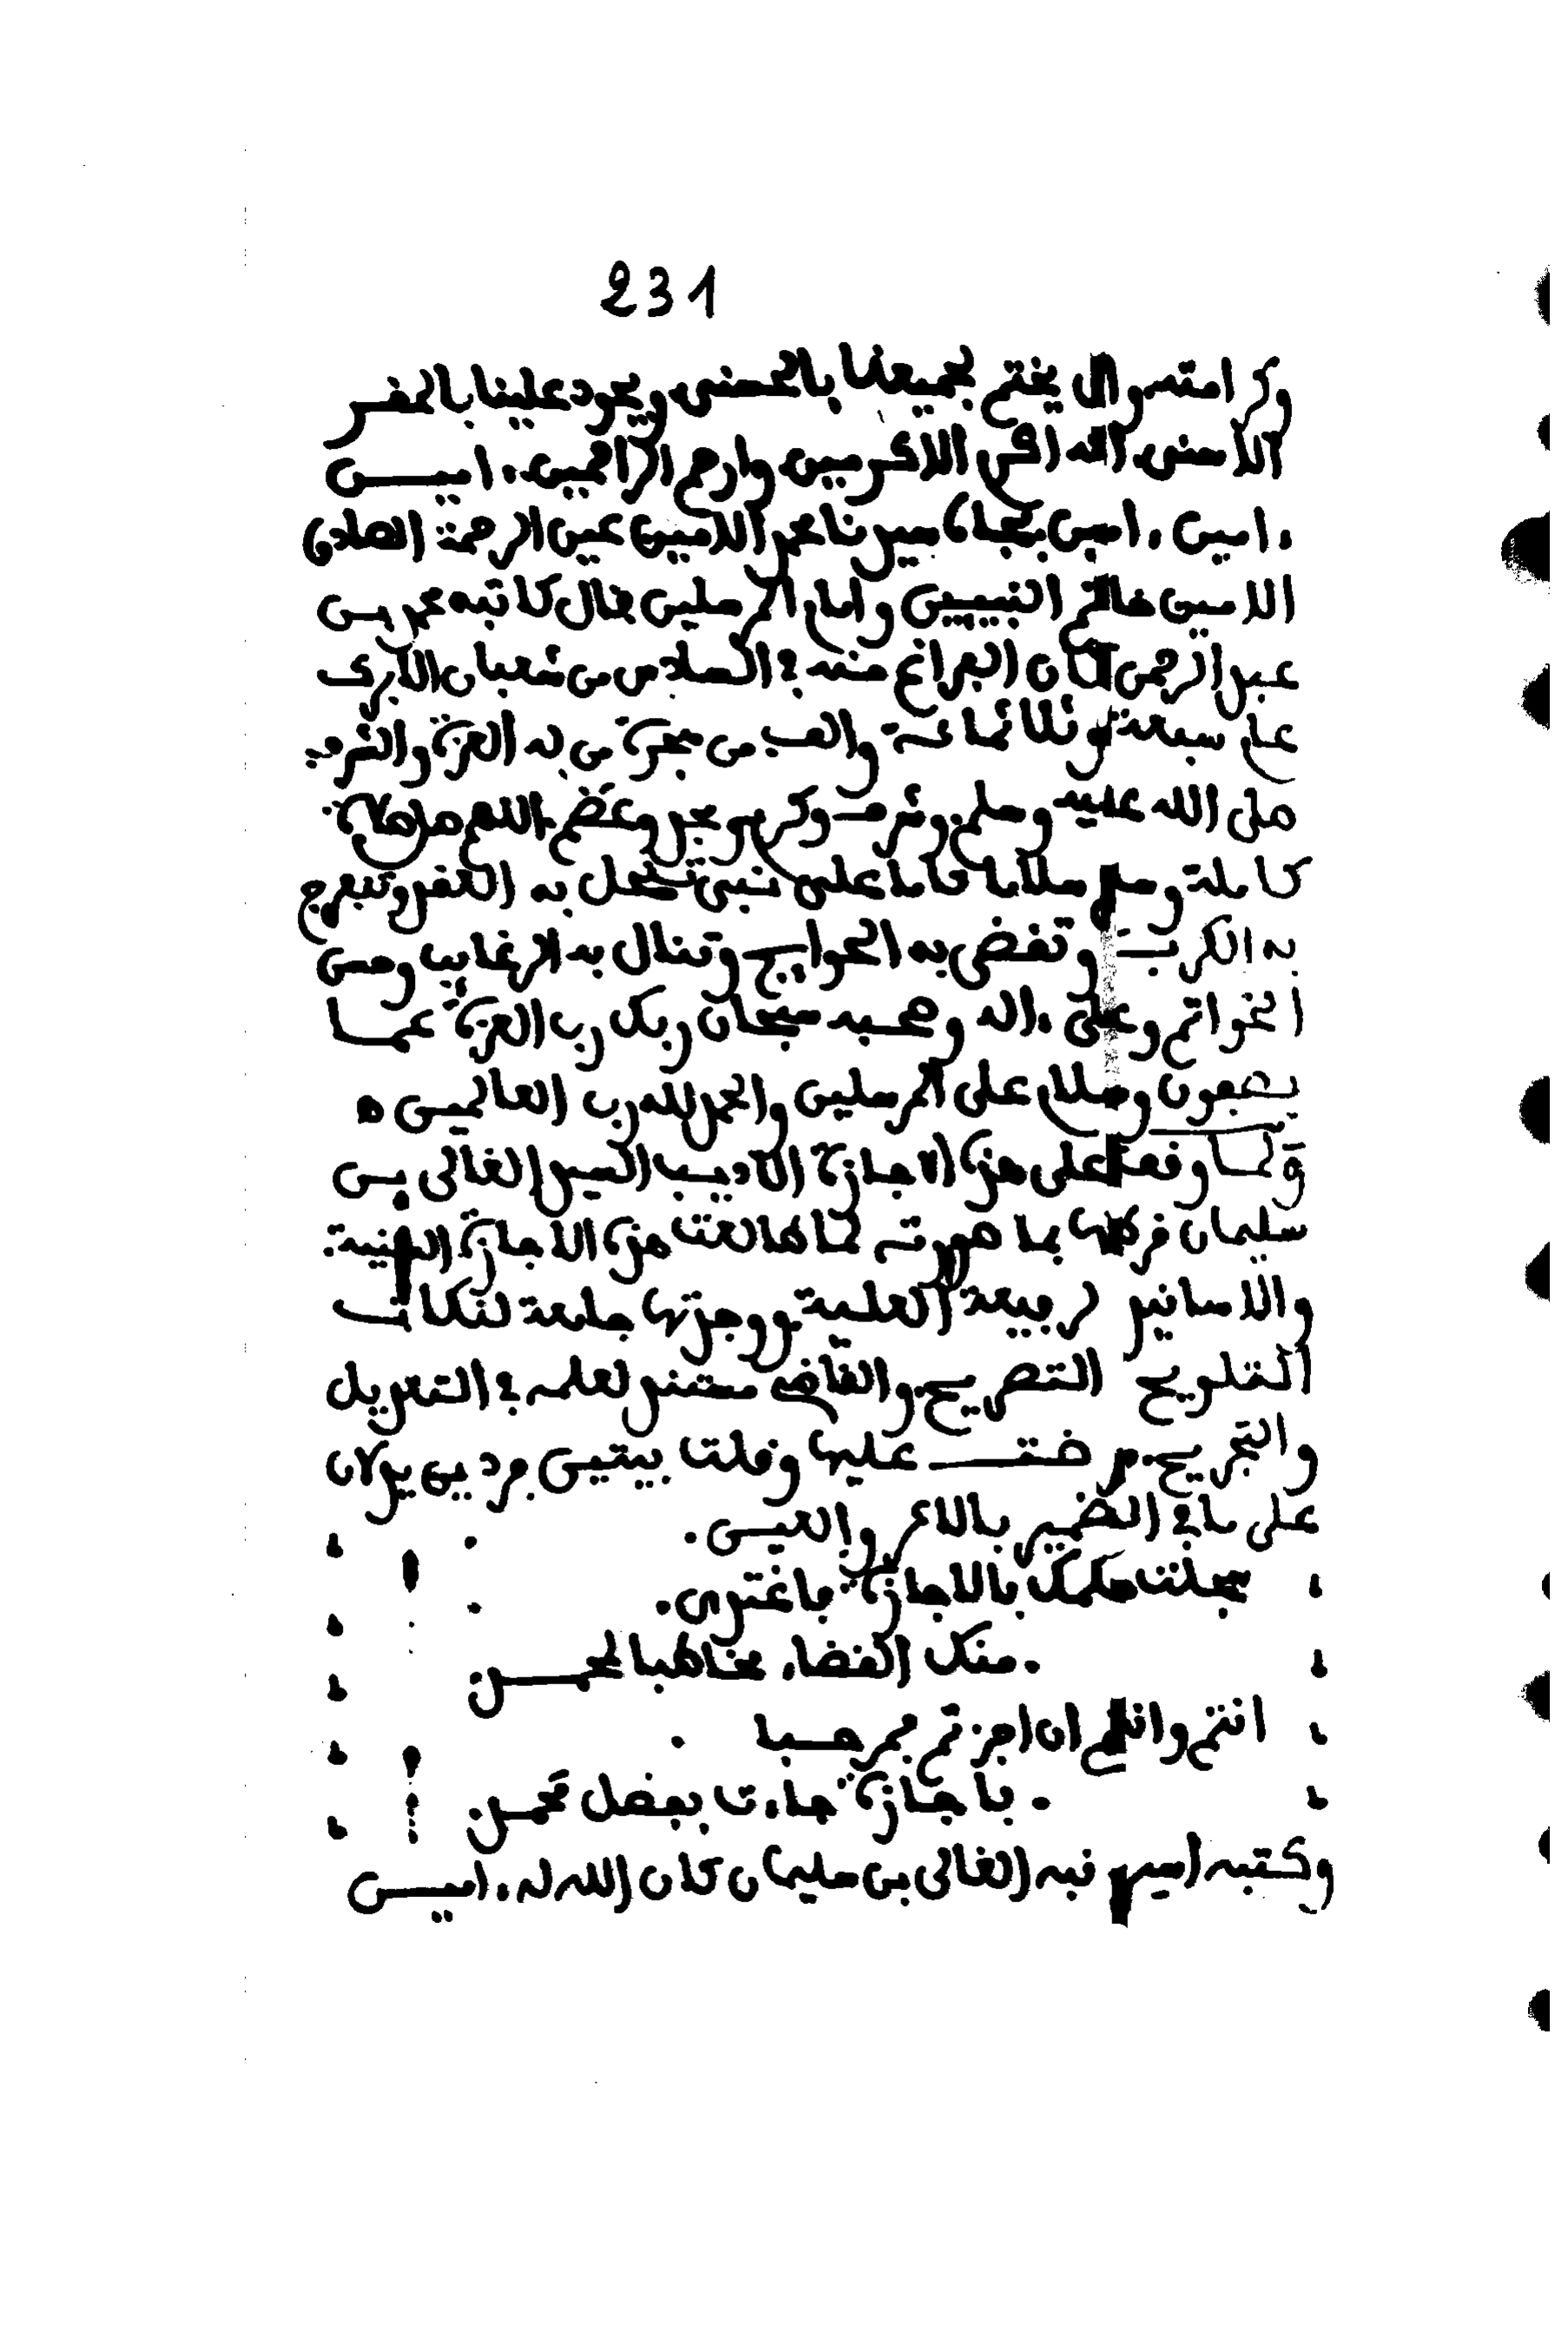 231
وكرامته وان يختم لجميعنا بالحسنى ويجود علينا بالمقر
الاسنى انه اكرم الاكرمين وارحم الراحمين ءاميـــن
ءامين ءامين بجاه سيدنا محمد الامين عين الرحمة الصادق
الامين خاتم النبيين وامام المرسلين قال كاتبه محمد بـن
عبد الرحمن كان الفراغ منه في السادس من شعبان الابرك
عام سبعة وثلاثمائة والف من هجرة من له العزة والشرف
صلى الله عليه وسلم وشرف وكرم ومجد وعظم اللهم صل صلاة
كاملة وسلم سلاما تاما على نبي تنحل به العقد وتنفرج
به الكرب وتقضى به الحوايج وتنال به الرغايب وحسن
الخواتم وعلى ءاله وصحبه سبحان ربك رب العزة عمـا
يصفون وسلام على المرسلين والحمد لله رب العالمين ه
ولما وقف على هذه الاجازة الاديب السيد الغالى بـن
سليمان قرظها بما صورته لما طالعت هذه الاجازة السنية
والاسانيد الرفيعة العلية ووجدتها جامعة لنكات
التلويح التصريح والقاضى مستند لعلمه في التعديل
والتجريح عليها وقلت بيتين فردين يدلان
على ما في الضمير بالاثر والعيـن
سجلت حكمك بالاجازة فاغتدى
منك القضاء مخاطبا لحســن
انتم وانتم ان اجزتم مرحـبا
باجازة جاءت بفضل محسـن
وكتبه اسير ذنبه الغالى بن سليمان كان الله له ءاميـــن